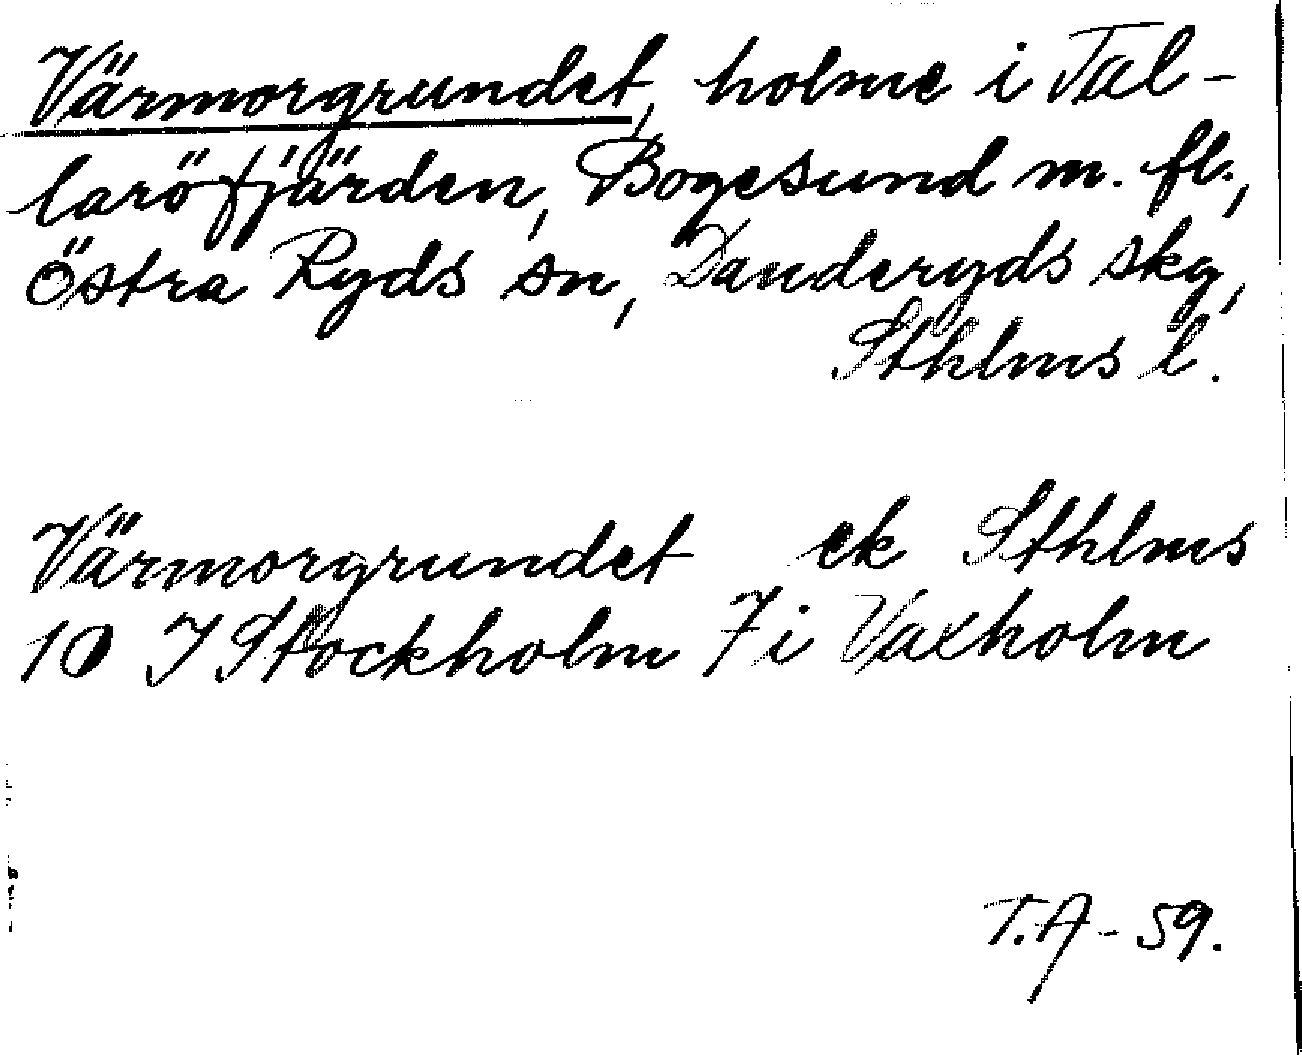 Värmorgrundet, holme i Tal-
laröfjärden, Bogesund m. fl.,
Östra Ryds sn, Danderyds skg,
Sthlms l.
Värmorgrundet ek Sthlms
10 I Stockholm 7 i Vaxholm
T.A - 59.